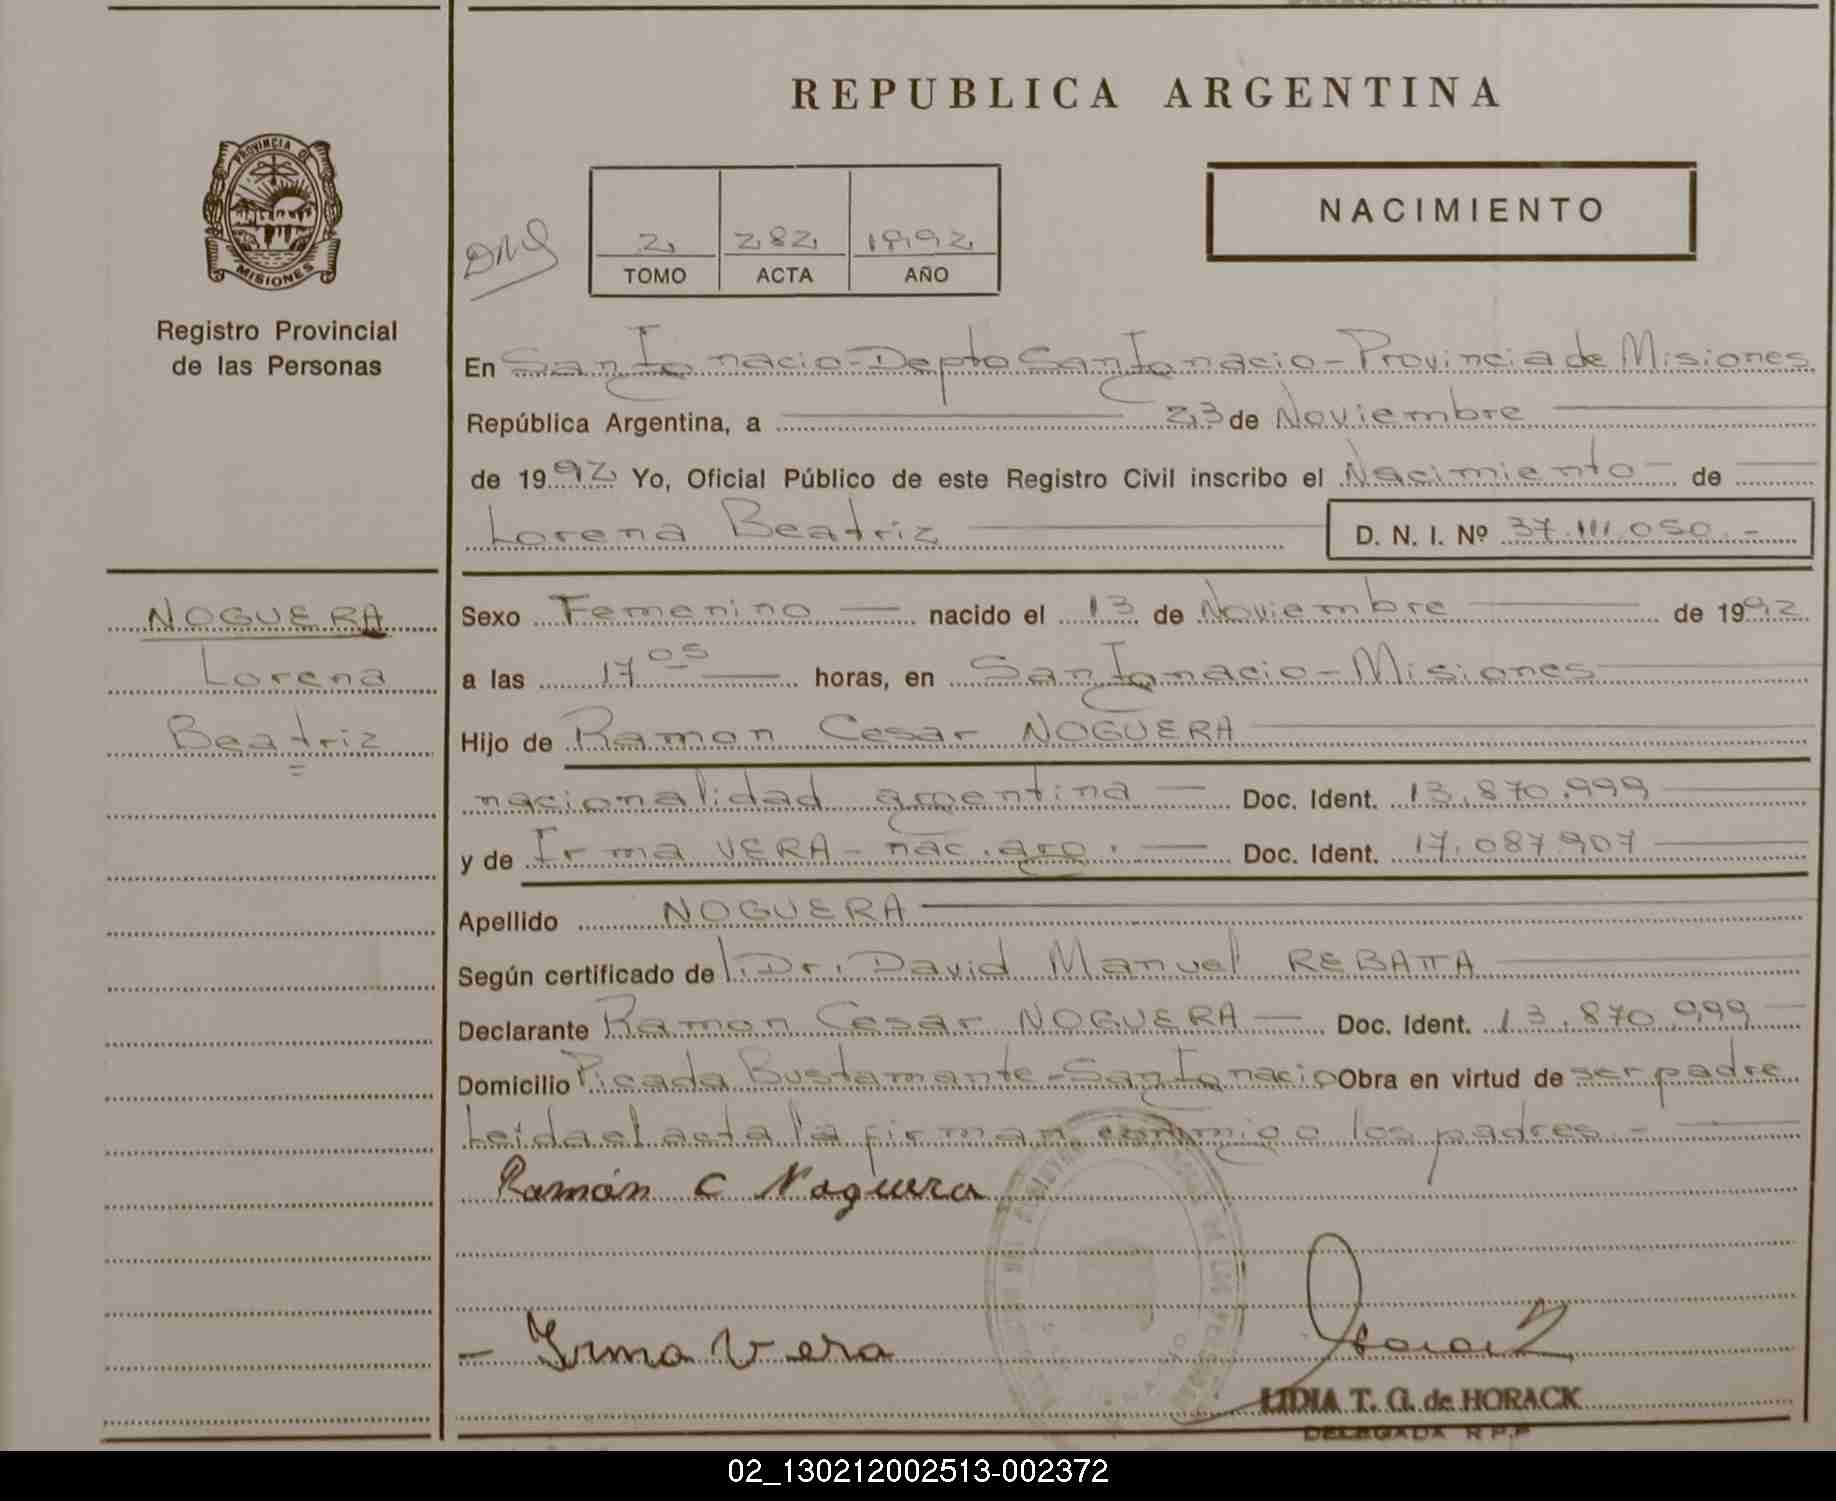 REPUBLICA ARGENTINA
PROVINCIA DE
MISIONES
Registro Provincial
de las Personas
2 282 1992
TOMO ACTA AÑO
NACIMIENTO
En San Ignacio - Depto San Ignacio - Provincia de Misiones
República Argentina, a 23 de Noviembre
de 1992 Yo, Oficial Público de este Registro Civil inscribo el Nacimiento de
Lorena Beatriz D. N. I. Nº 37.111.050.-
NOGUERA
Lorena
Beatriz
Sexo Femenino nacido el 13 de Noviembre de 1992
a las 17 05 horas, en San Ignacio - Misiones
Hijo de Ramon Cesar NOGUERA
nacionalidad argentina Doc. Ident. 13.870.999
y de Irma VERA - nac. arg. Doc. Ident. 17.087.907
Apellido NOGUERA
Según certificado de l Dr. David Manuel REBATTA
Declarante Ramon Cesar NOGUERA Doc. Ident. 13.870.999
Domicilio Picada Bustamante - San Ignacio Obra en virtud de ser padre
Leida el acta la firman conmigo los padres.-
Ramón C Noguera
- Irma Vera
LIDIA T. G. de HORACK
DELEGADA R.P.P
02_130212002513-002372